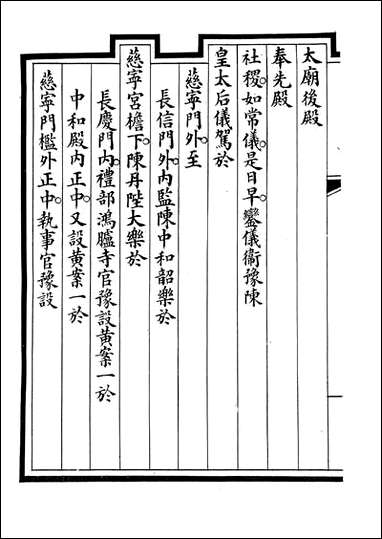 太廟後殿
奉先殿
社稷如常儀是日早鑾儀衛豫陳
皇太后儀駕於
慈寧門外至
長信門外内監陳中和韶樂於
慈寧宮檐下陳丹陛大樂於
長慶門内禮部鴻臚寺官豫設黃案一於
中和殿内正中又設黃案一於
慈寧門檻外正中執事官豫設